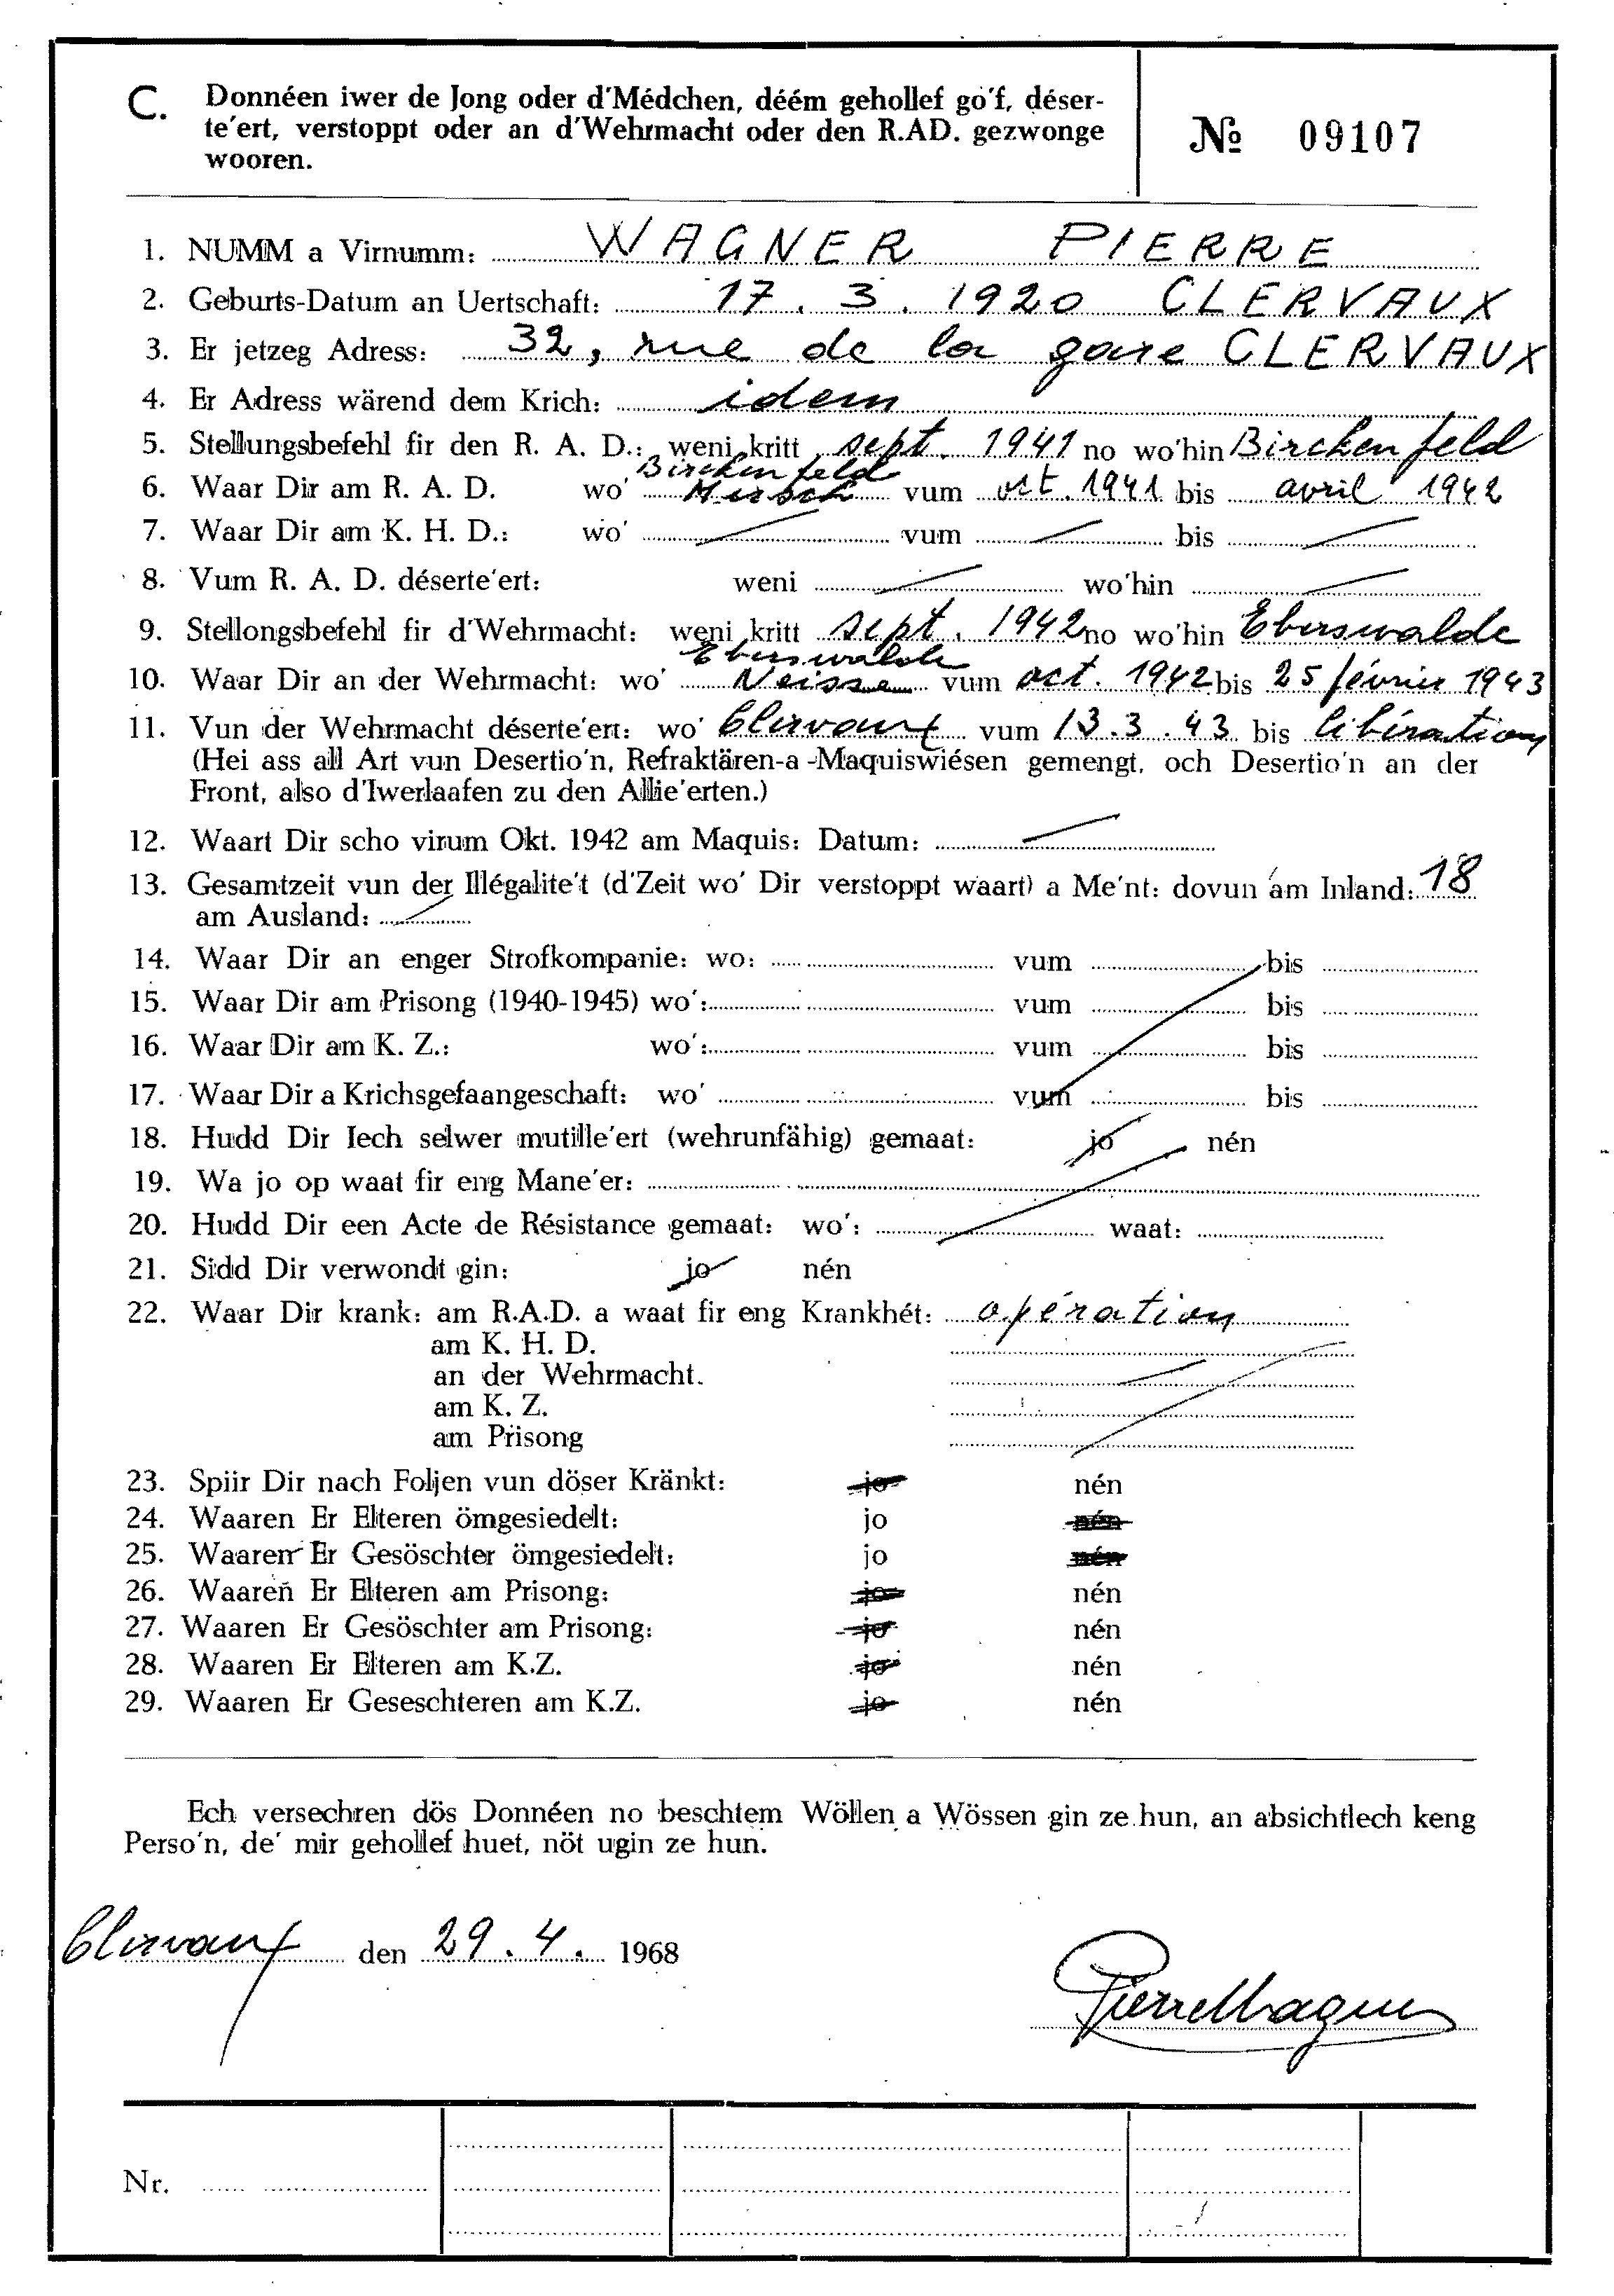 C. Donnéen iwer de Jong oder d'Médchen, déém gehollef go'f, déser-
te'ert, verstoppt oder an d'Wehrmacht oder den R.AD. gezwonge
wooren.
№ 09107
1. NUMM a Virnumm: WAGNER PIERRE
2. Geburts-Datum an Uertschaft: 17. 3. 1920 CLERVAUX
3. Er jetzeg Adress: 32, rue de la gare CLERVAUX
4. Er Adress wärend dem Krich: idem
5. Stellungsbefehl fir den R. A. D.: weni kritt sept. 1941 no wo'hin Birckenfeld
6. Waar Dir am R. A. D. wo' Birckenfeld Mersch vum oct. 1941 bis avril 1942
7. Waar Dir am K. H. D.: wo' vum bis
8. Vum R. A. D. déserte'ert: weni wo'hin
9. Stellongsbefehl fir d'Wehrmacht: weni kritt sept. 1942 no wo'hin Eberswalde
10. Waar Dir an der Wehrmacht: wo' Eberswalde Neisse vum oct. 1942 bis 25 février 1943
11. Vun der Wehrmacht déserte'ert: wo' Clervaux vum 13.3.43 bis libération
(Hei ass all Art vun Desertio'n, Refraktären-a -Maquiswiésen gemengt, och Desertio'n an der
Front, also d'Iwerlaafen zu den Allie'erten.)
12. Waart Dir scho virum Okt. 1942 am Maquis: Datum:
13. Gesamtzeit vun der Illégalite't (d'Zeit wo' Dir verstoppt waart) a Me'nt: dovun am Inland: 18
am Ausland:
14. Waar Dir an enger Strofkompanie: wo: vum bis
15. Waar Dir am Prisong (1940-1945) wo': vum bis
16. Waar Dir am K. Z.: wo': vum bis
17. Waar Dir a Krichsgefaangeschaft: wo' vum bis
18. Hudd Dir Iech selwer mutille'ert (wehrunfähig) gemaat: jo nén
19. Wa jo op waat fir eng Mane'er:
20. Hudd Dir een Acte de Résistance gemaat: wo': waat:
21. Sidd Dir verwondt gin: jo nén
22. Waar Dir krank: am R.A.D. a waat fir eng Krankhét: opération
am K. H. D.
an der Wehrmacht.
am K. Z.
am Prisong
23. Spiir Dir nach Foljen vun döser Kränkt: jo nén
24. Waaren Er Elteren ömgesiedelt: jo nén
25. Waaren Er Gesöschter ömgesiedelt: jo nén
26. Waaren Er Elteren am Prisong: jo nén
27. Waaren Er Gesöschter am Prisong: jo nén
28. Waaren Er Elteren am K.Z. jo nén
29. Waaren Er Geseschteren am K.Z. jo nén
Ech versechren dös Donnéen no beschtem Wöllen a Wössen gin ze hun, an absichtlech keng
Perso'n, de' mir gehollef huet, nöt ugin ze hun.
Clervaux den 29. 4. 1968
Pierre Wagner
Nr.